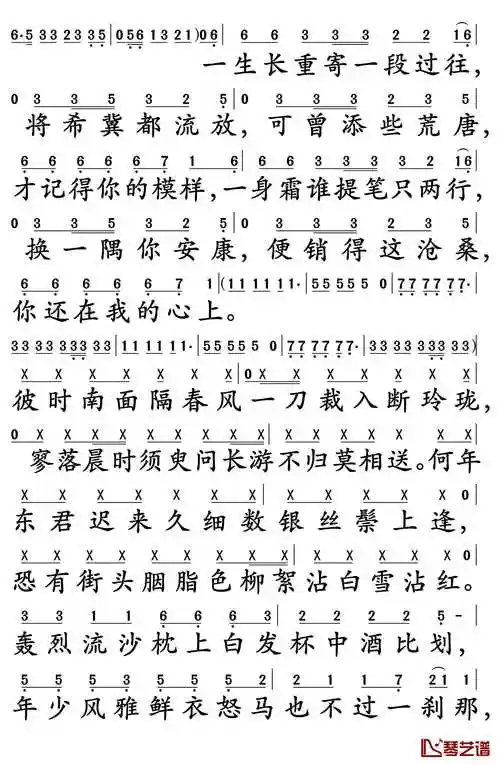 6·5 33 23 35 | 056 1321) 06 | 6 6 3 3 3 2 2 16 |
一生长重寄一段过往,
0 3 3 5 3 2 5 | 0 3 3 3 3 2 2 5 |
将希冀都流放,可曾添些荒唐,
6 6 6 6 6 7 1 6 | 6 6 3 3 3 3 2 16 |
才记得你的模样,一身霜谁提笔只两行,
0 3 3 5 3 2 5 | 0 3 3 3 3 2 2 5 |
换一隅你安康,便销得这沧桑,
6 6 6 6 6 7 1 | (11 11 11· | 55 555 5 0 | 77 777 77· |
你还在我的心上。
33 33 33 33 33 | 11 11 11· | 55 555 5 0 | 77 777 77· | 33 33 33 33 33)
X X X X X X X | 0 X X X X X X X |
彼时南面隔春风一刀裁入断玲珑,
0 X X X X X X X | X X X X X X X X |
寥落晨时须臾问长游不归莫相送。何年
X X X X X X X X | X X X X X 0 |
东君迟来久细数银丝鬃上逢,
X X X X X X X X | X X X X X X 0 |
恐有街头胭脂色柳絮沾白雪沾红。
3 3 1 1 6 6 6 3 | 2 2 2 2 5 - |
轰烈流沙枕上白发杯中酒比划,
5 5 5 5 5 5 5 2 | 2 2 1 7 21 1 |
年少风雅鲜衣怒马也不过一刹那,
琴艺谱